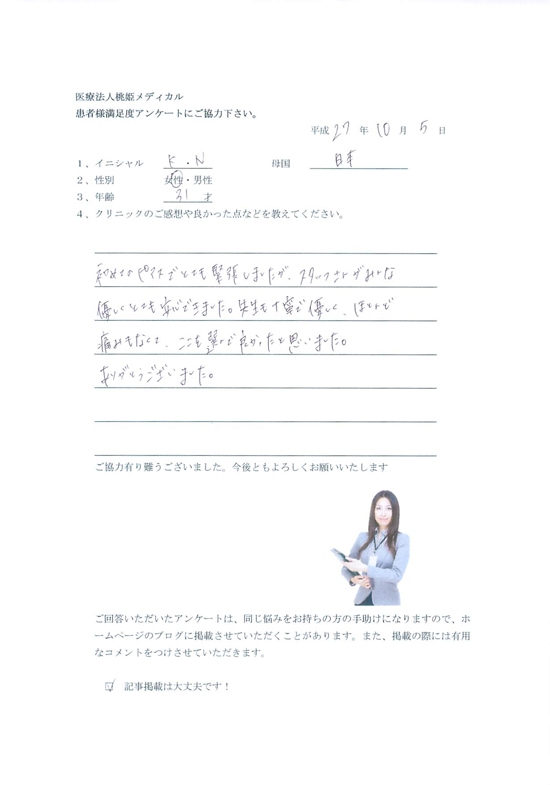 医療法人桃姫メディカル
患者様満足度アンケートにご協力下さい。
平成 27 年 10 月 5 日
1、イニシャル K・N 母国 日本
2、性別 女性・男性
3、年齢 31 才
4、クリニックのご感想や良かった点などを教えてください。
初めてなピアスでとても緊張しましたが、スタッフさんがみんな
優しくとても安心できました。先生も丁寧で優しく、ほとんど
痛みもなくて、ここを選んで良かったと思いました。
ありがとうございました。
ご協力有り難うございました。今後ともよろしくお願いいたします
ご回答いただいたアンケートは、同じ悩みをお持ちの方の手助けになりますので、ホ
ームページのブログに掲載させていただくことがあります。また、掲載の際には有用
なコメントをつけさせていただきます。
記事掲載は大丈夫です！